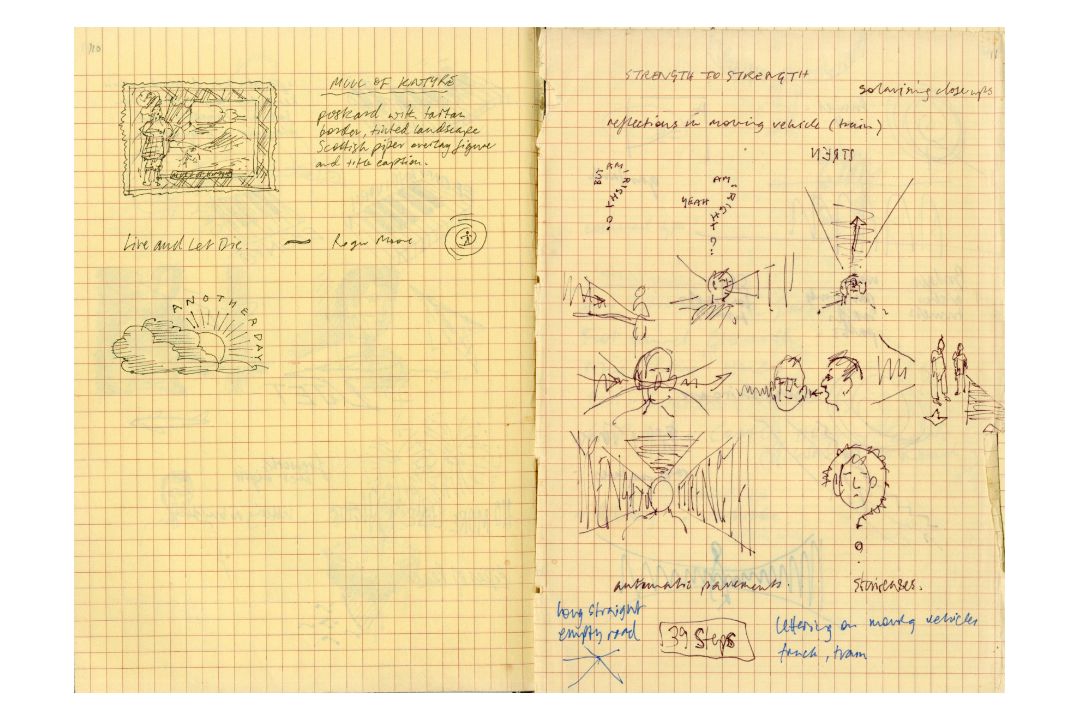 110
MULL OF KINTYRE
postcard with tartan
border, tinted landscape
Scottish piper overlay figure
and title caption.
Live and Let Die ~ Roger Moore
ANOTHER DAY
11
STRENGTH TO STRENGTH
solarising close ups
reflections in moving vehicle (train)
STREN
BUT AM I RISHT?
YEAH AM I RIGHT?
STRENGTH TO STRENGTH
automatic pavements.
Staircases.
long straight
empty road
39 Steps
lettering on moving vehicles
truck, train